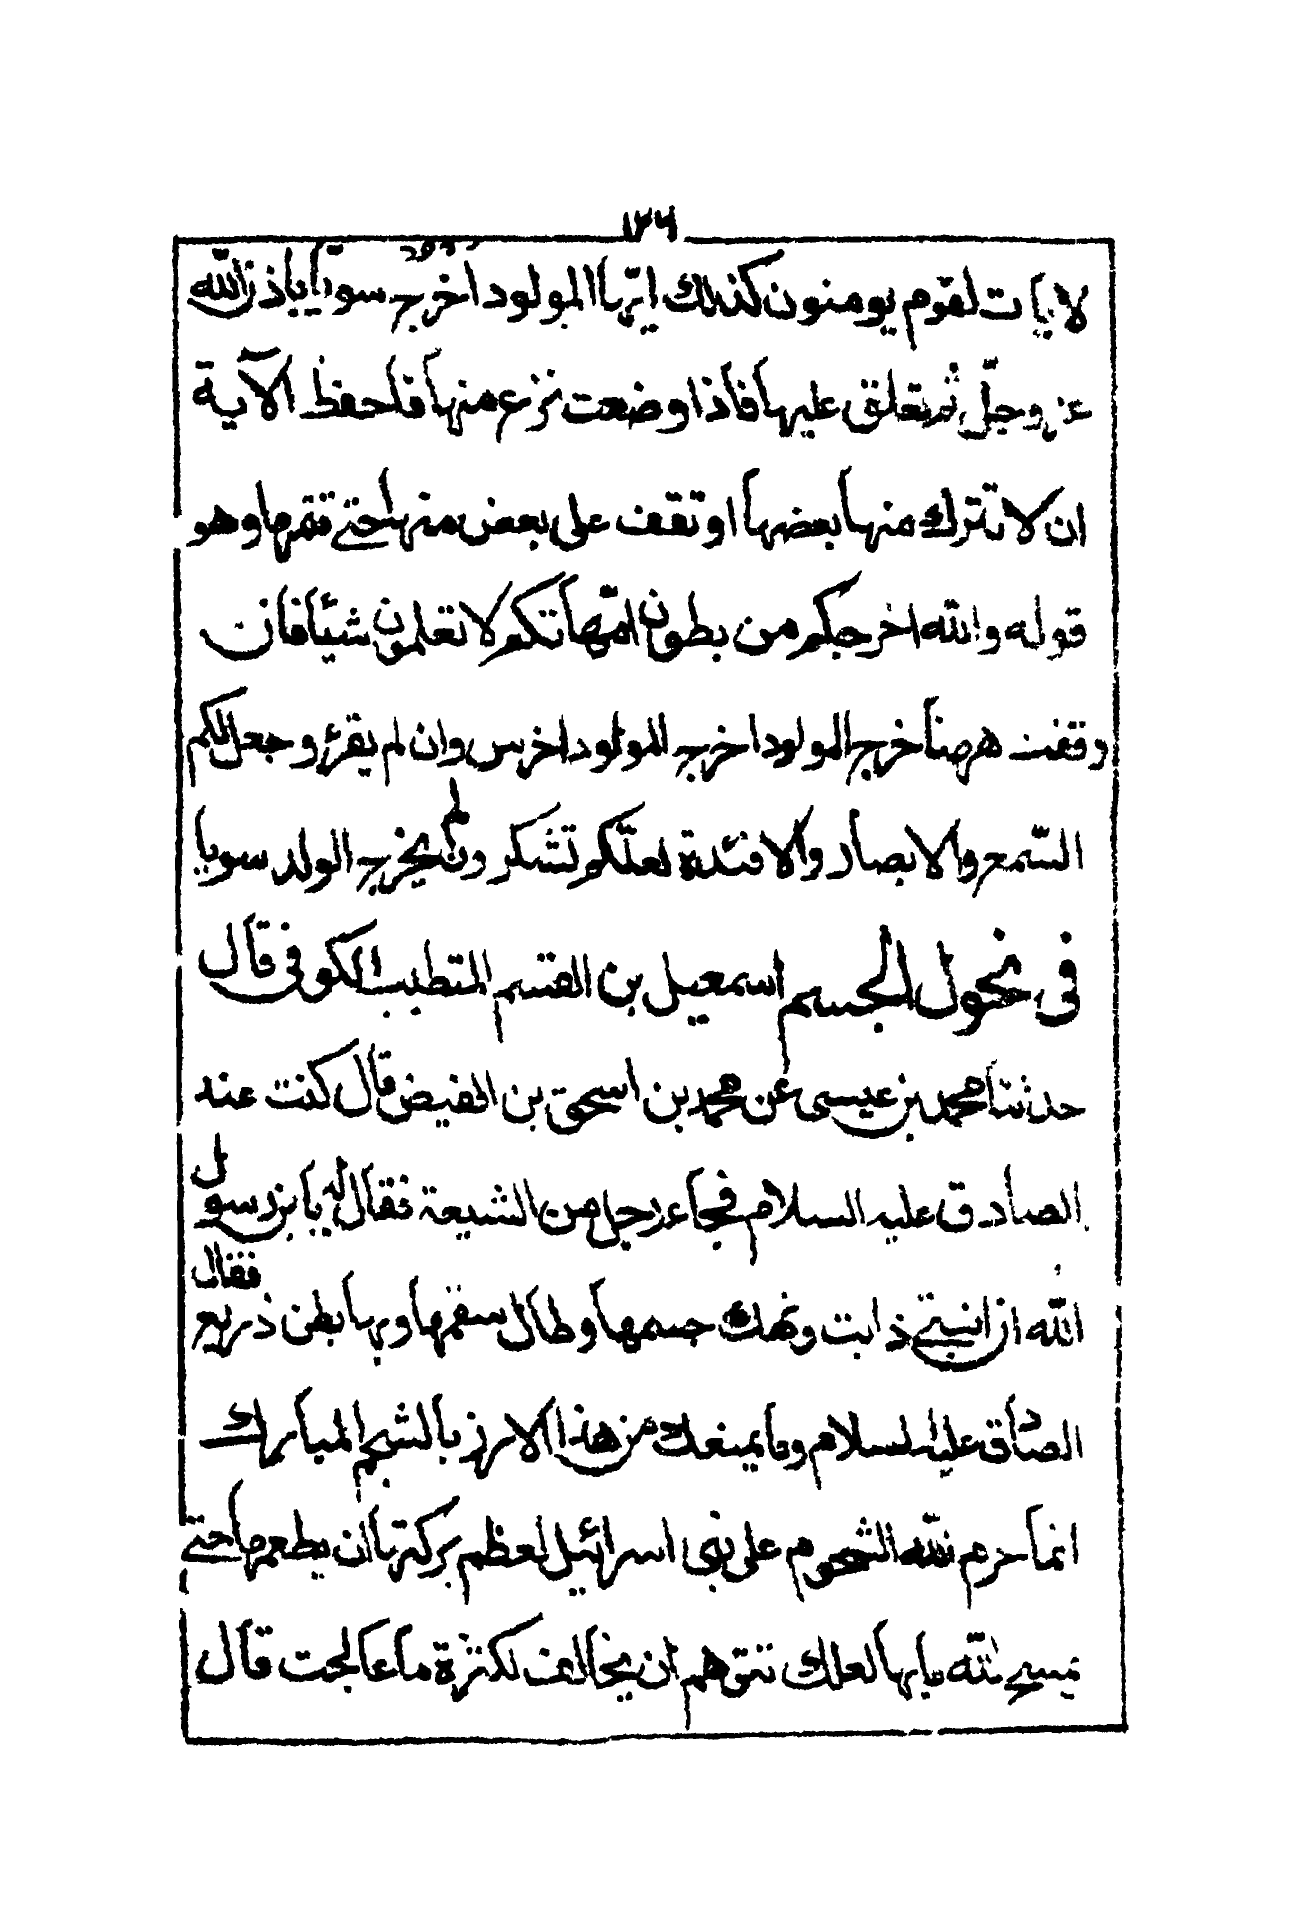 ١٢٦
لايات لقوم يومنون كذلك ايّها المولود اخرج سويا باذن الله
عز وجلّ ثم تعلق عليها فاذا وضعت نزع منها فاحفظ الآية
ان لا تترك منها بعضها او تقف على بعض منها حتى تتمها وهو
قوله والله اخرجكم من بطون امّهاتكم لا تعلمون شيئا فان
وقفت ههنا خرج المولود اخرج المولود اخرس وان لم يقرؤ وجعل لكم
السّمع والابصار والافئدة لعلّكم تشكرون لم يخرج الولد سويا
في نحول الجسم اسمعيل بن القسم المتطبب الكوفى قال
حدثنا محمد بن عيسى عن محمد بن اسحق بن الفيض قال كنت عند
الصادق عليه السلام فجاء رجل من الشيعة فقال له يا بن رسول
الله ان ابنتي ذابت ونهك جسمها وطال سقمها وبها بطن ذريع فقال
الصادق عليه السلام وما يمنعك من هذا الارز بالشحم المبارك
انما حرم الله الشحوم على بني اسرائيل لعظم بركتها ان يطعمها حتى
يمسح الله ما بها لعلك تتوهم ان يخالف لكثرة ما عالجت قال